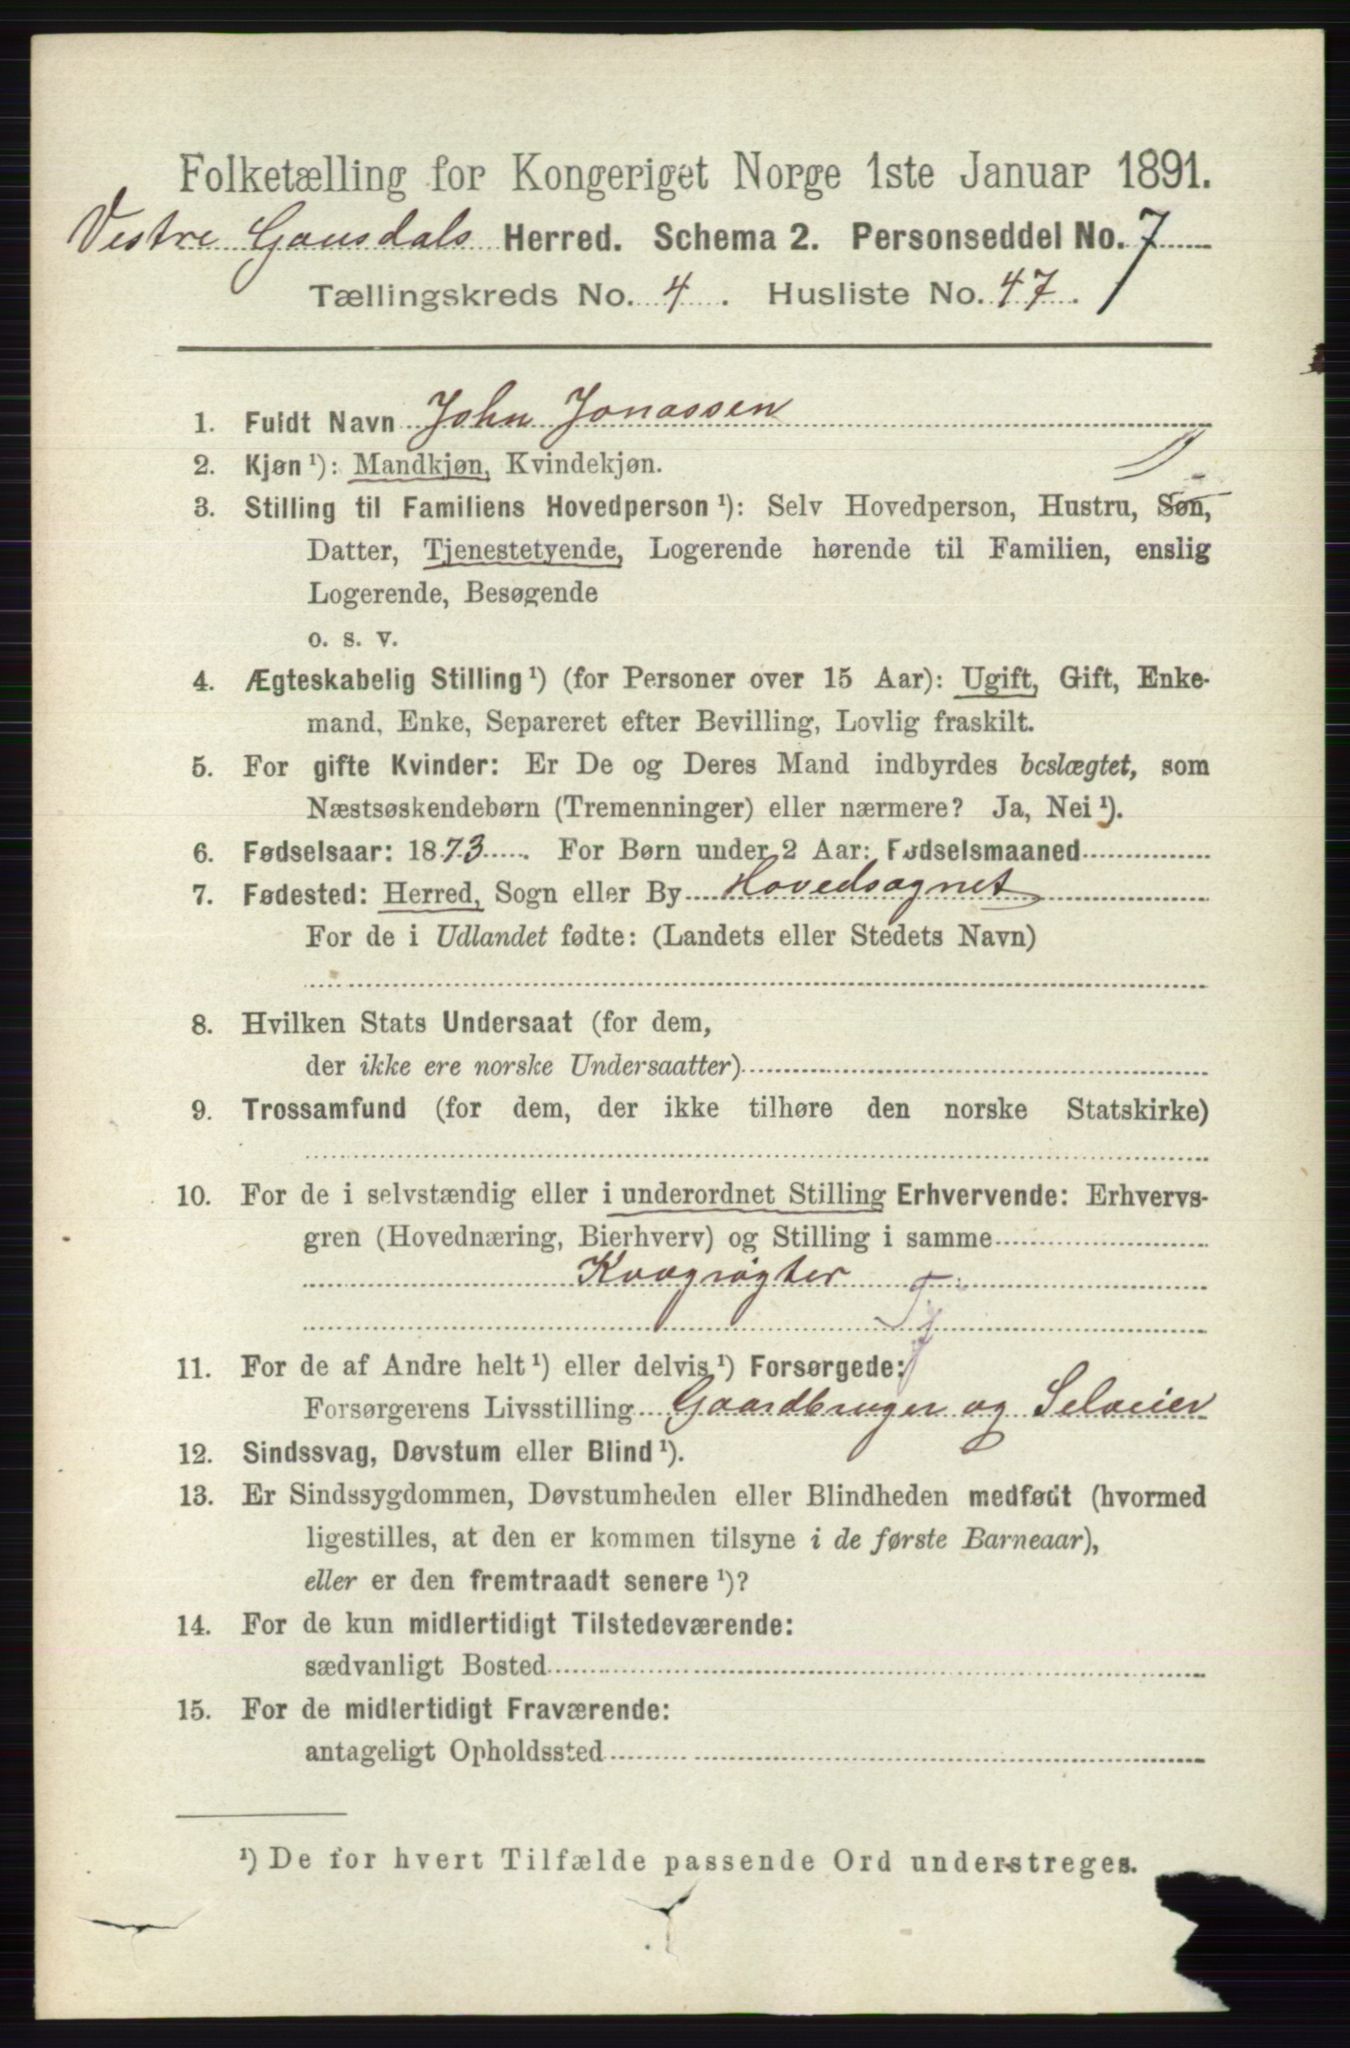 Folketælling for Kongeriget Norge 1ste Januar 1891.
Vestre Gausdals Herred. Schema 2. Personseddel No. 7
Tællingskreds No. 4. Husliste No. 47.
1. Fuldt Navn John Jonassen
2. Kjøn ¹): Mandkjøn, Kvindekjøn.
3. Stilling til Familiens Hovedperson ¹): Selv Hovedperson, Hustru, Søn,
Datter, Tjenestetyende, Logerende hørende til Familien, enslig
Logerende, Besøgende
o. s. v.
4. Ægteskabelig Stilling ¹) (for Personer over 15 Aar): Ugift, Gift, Enke-
mand, Enke, Separeret efter Bevilling, Lovlig fraskilt.
5. For gifte Kvinder: Er De og Deres Mand indbyrdes beslægtet, som
Næstsøskendebørn (Tremenninger) eller nærmere? Ja, Nei ¹).
6. Fødselsaar: 1873. For Børn under 2 Aar: Fødselsmaaned
7. Fødested: Herred, Sogn eller By Hovedsognet
For de i Udlandet fødte: (Landets eller Stedets Navn)
8. Hvilken Stats Undersaat (for dem,
der ikke ere norske Undersaatter)
9. Trossamfund (for dem, der ikke tilhøre den norske Statskirke)
10. For de i selvstændig eller i underordnet Stilling Erhvervende: Erhvervs-
gren (Hovednæring, Bierhverv) og Stilling i samme
Kvægrøgter
Tj
11. For de af Andre helt ¹) eller delvis ¹) Forsørgede:
Forsørgerens Livsstilling Gaardbruger og Selveier
12. Sindssvag, Døvstum eller Blind ¹).
13. Er Sindssygdommen, Døvstumheden eller Blindheden medfødt (hvormed
ligestilles, at den er kommen tilsyne i de første Barneaar),
eller er den fremtraadt senere ¹)?
14. For de kun midlertidigt Tilstedeværende:
sædvanligt Bosted
15. For de midlertidigt Fraværende:
antageligt Opholdssted
¹) De for hvert Tilfælde passende Ord understreges.